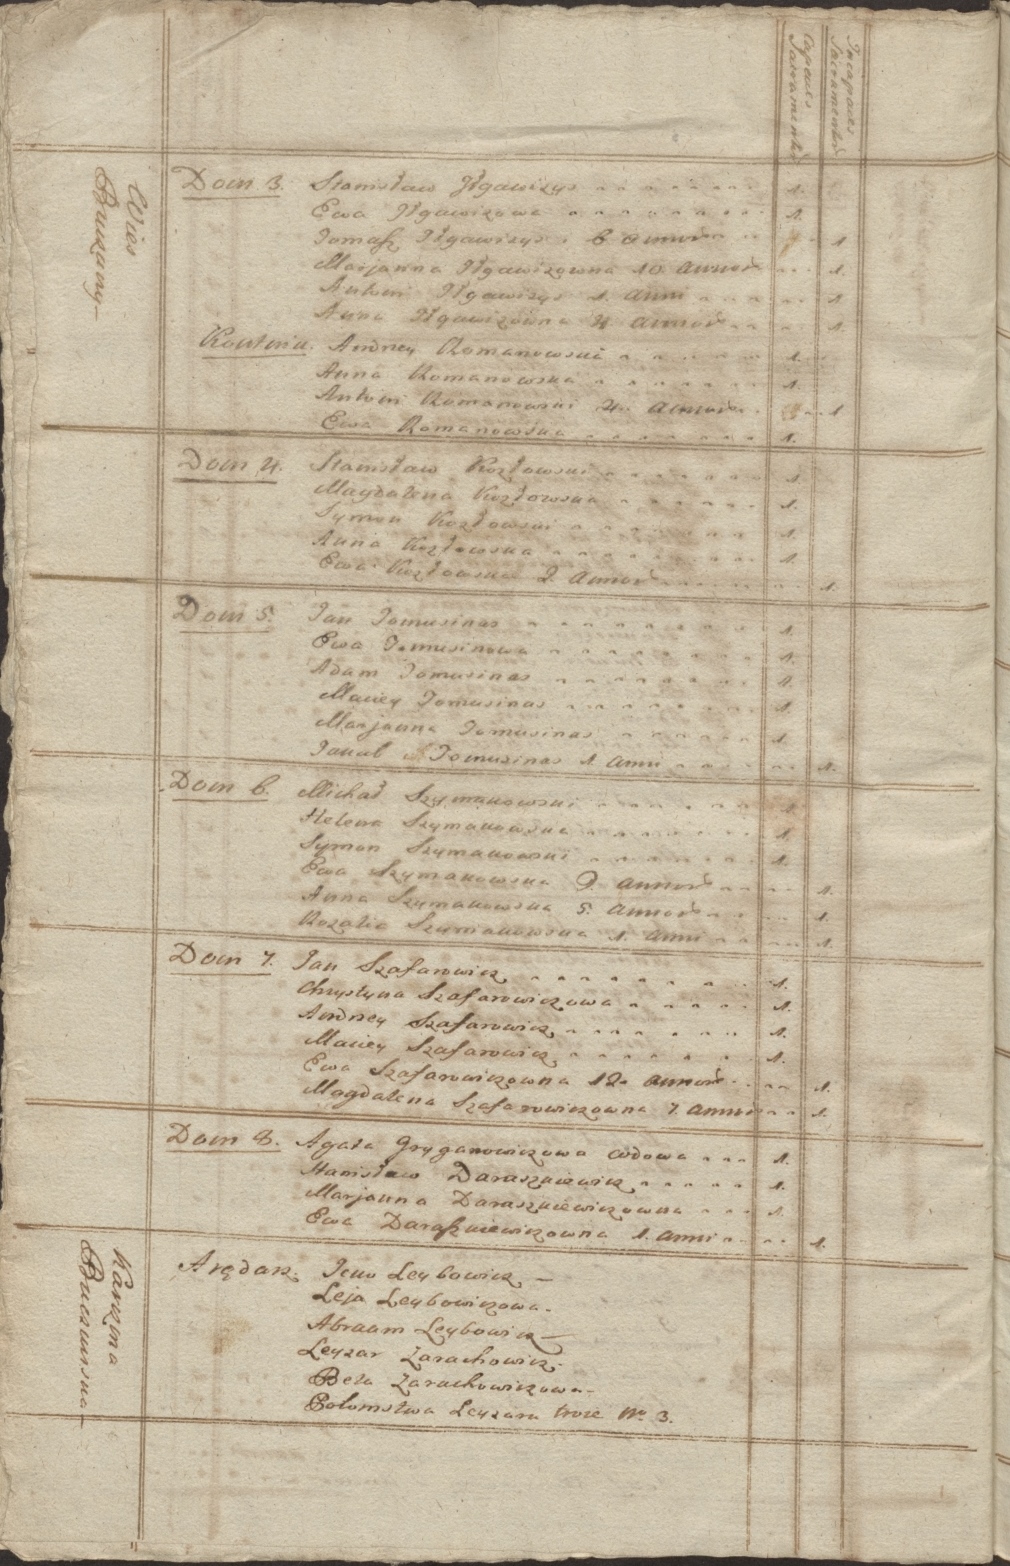 Capaces Sacramentor
Incapaces Sacramentor
Wies
Dom 3. Stanisław Jłgawizys 1.
Ewa Jłgawizowa 1.
Tomasz Jłgawizys 6 annor 1
Marjanna Jłgawizowna 10 annor 1.
Antoni Jłgawizys 1. anni 1
Anna Jłgawizowna 4 annor 1.
Andrzey Romanowski 1.
Anna Romanowska 1.
Antoni Romanowski 4. annor 1
Ewa Romanowska 1.
Dom 4. Stanisław Kozłowski 1.
Magdalena Kozłowska 1.
Symon Kozłowski 1.
Anna Kozłowska 1.
Ewa Kozłowska 2 annor 1.
Dom 5. Jan Tomusinas 1.
Ewa Tomusinowa 1.
Adam Tomusinas 1.
Maciey Tomusinas 1.
Marjanna Tomusinas 1.
Jakub Tomusinas 1 anni 1.
Dom 6. Michał Szymanowski 1.
Helena Szymanowska 1.
Symon Szymanowski 1.
Ewa Szymanowska 9. annor 1.
Anna Szymanowska 5. annor 1.
Rozalia Szymanowska 1. anni 1.
Dom 7. Jan Szafarowicz 1.
Chrystyna Szafarowiczowa 1.
Andrzey Szafarowicz 1.
Maciey Szafarowicz 1.
Ewa Szafarowiczowna 12. annor 1.
Magdalena Szafarowiczowna 7 annor 1.
Dom 8. Agata Gryganowiczowa wdowa 1.
Stanisław Daraszkiewicz 1.
Marjanna Daraszkiewiczowna 1.
Ewa Daraszkiewiczowna 1. anni 1.
Karczma
Arędarz. Leybowicz –
Leja Leybowiczowa.
Abraam Leybowicz –
Leyzar Zarachowicz.
Beta Zarachowiczowa –
Potomstwa Leyzara troie Nº 3.